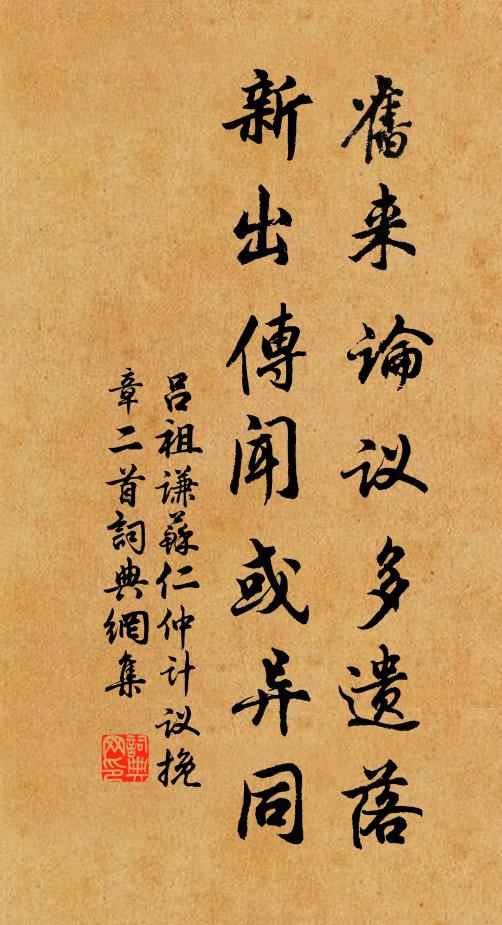 舊来論议多遗落
新出傳聞或异同
吕祖谦蘇仁仲计议挽
章二首詞典網集
詞典网印